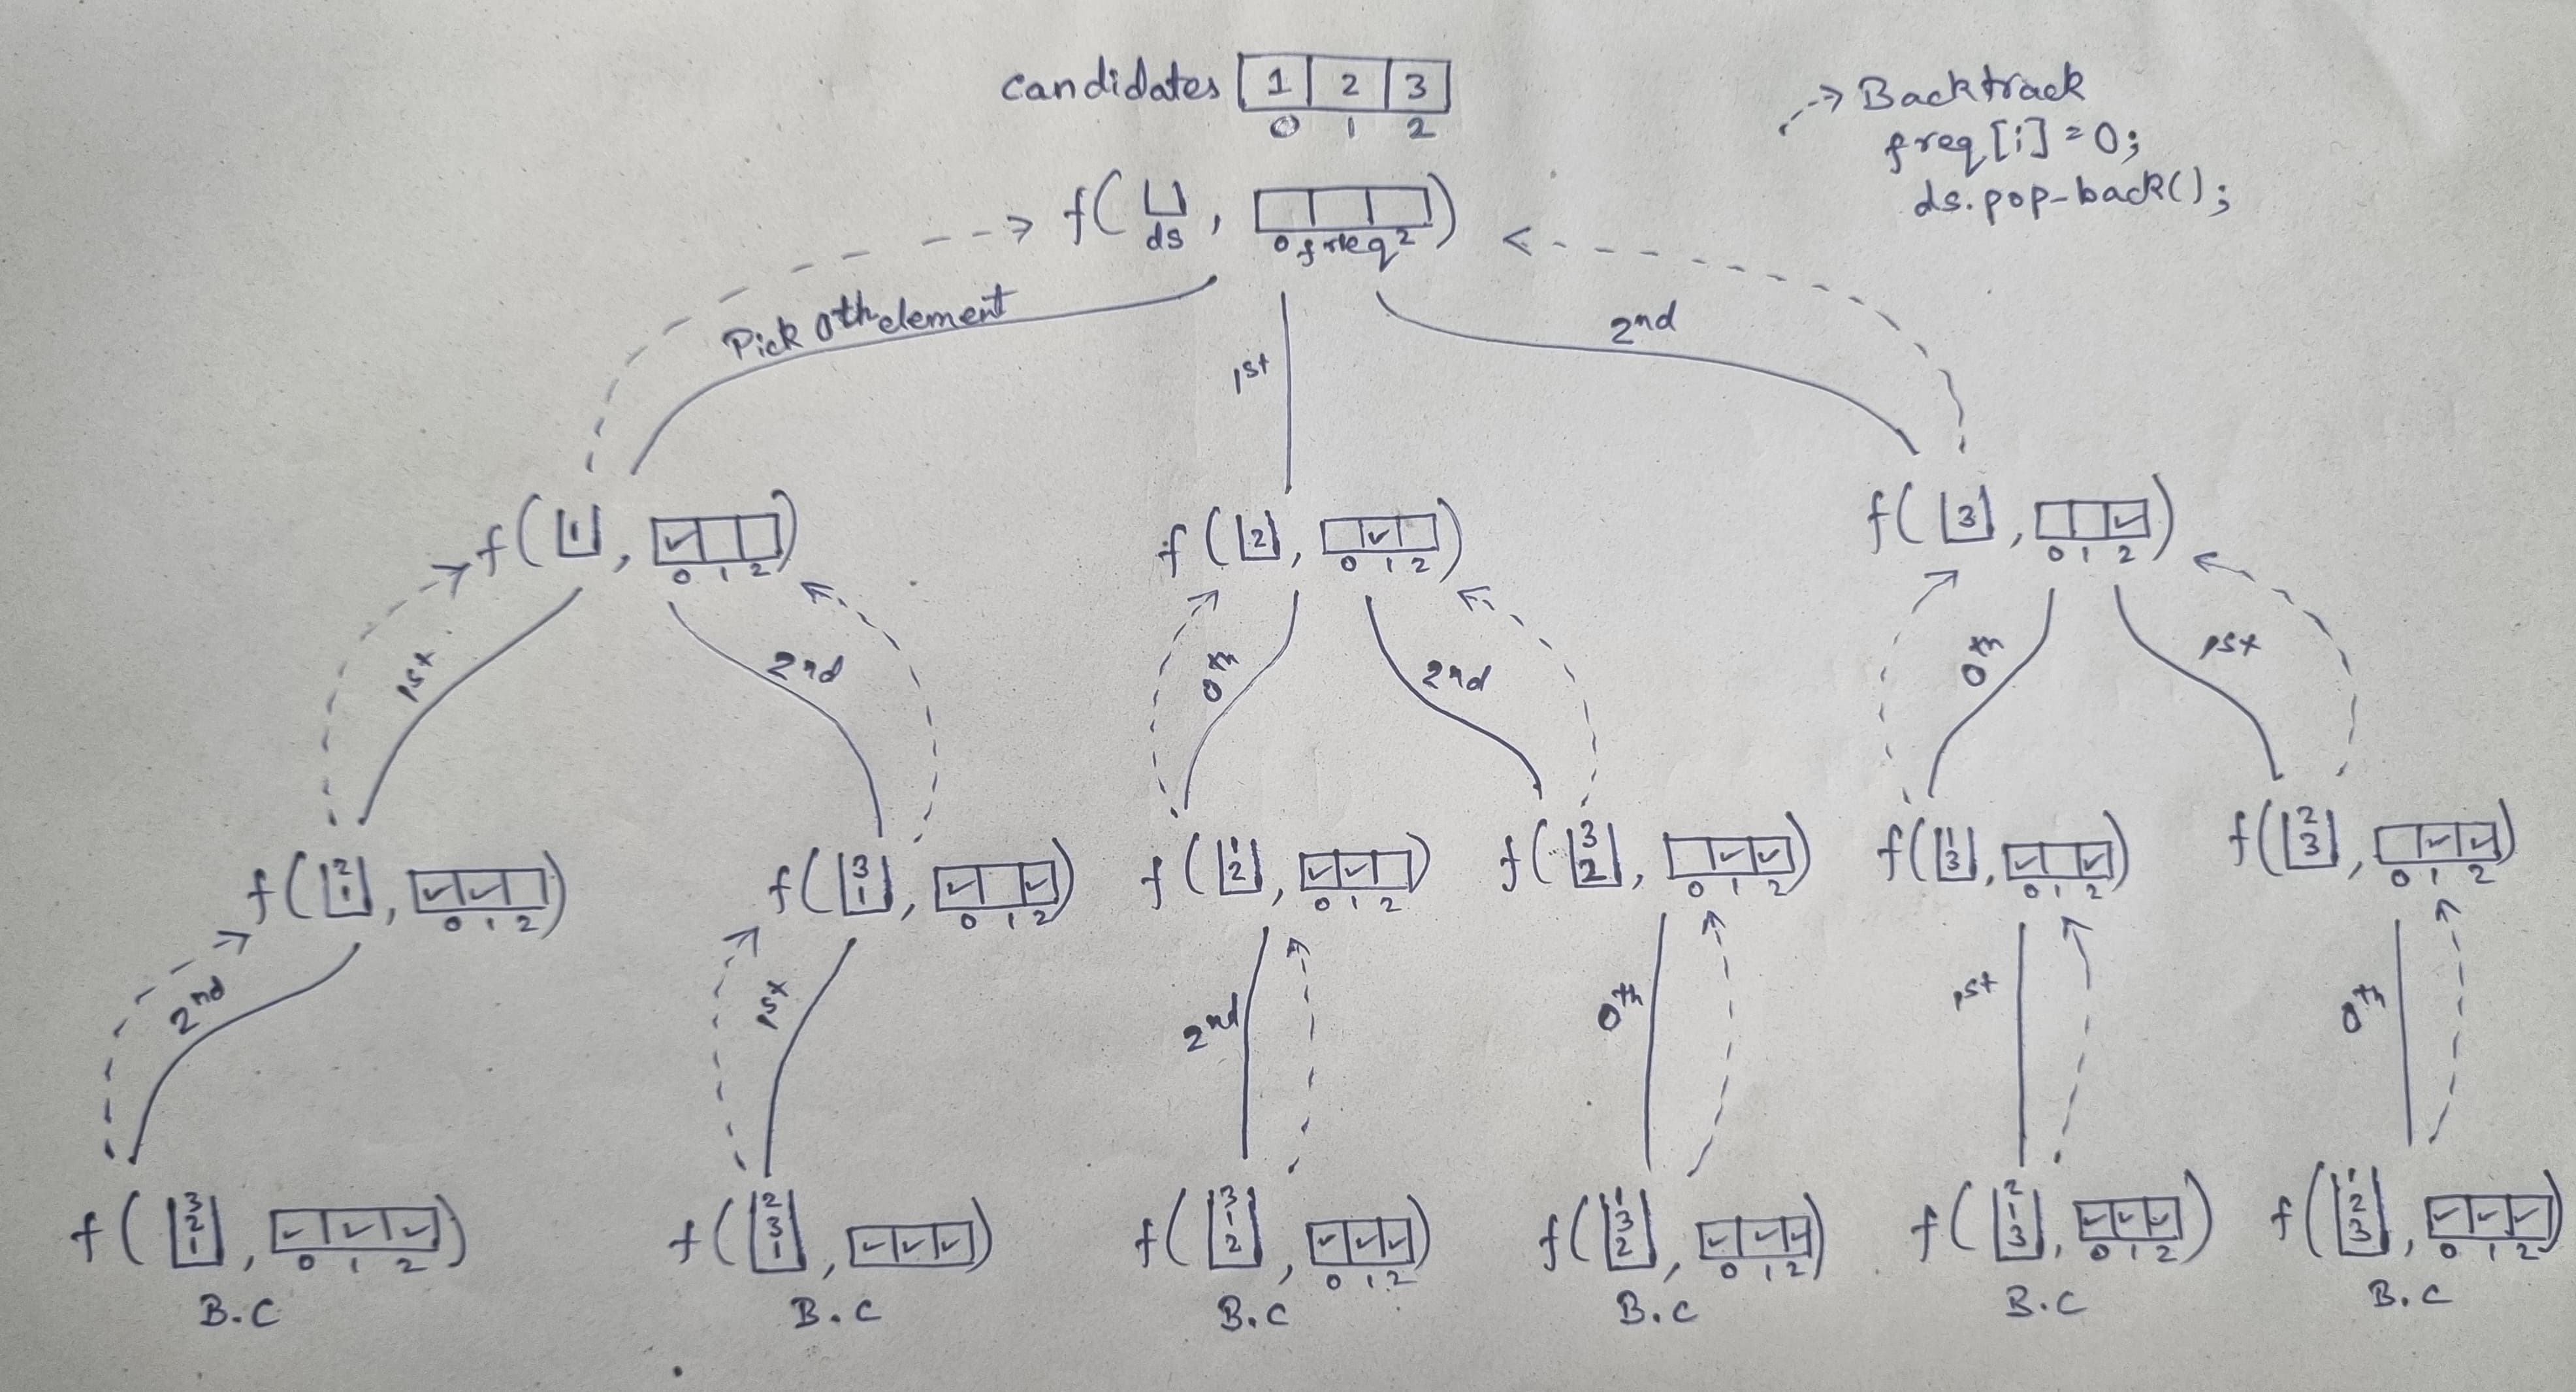 candidates 1 2 3
0 1 2
Backtrack
freq[i]=0;
ds.pop-back();
f( , )
ds 0 freq 2
Pick 0th element
1st
2nd
f( 1 , ✓ )
0 1 2
f( 2 , ✓ )
0 1 2
f( 3 , ✓ )
0 1 2
1st
2nd
0th
2nd
0th
1st
f( 2 1 , ✓ ✓ )
0 1 2
f( 3 1 , ✓ ✓ )
0 1 2
f( 1 2 , ✓ ✓ )
0 1 2
f( 3 2 , ✓ ✓ )
0 1 2
f( 1 3 , ✓ ✓ )
0 1 2
f( 2 3 , ✓ ✓ )
0 1 2
2nd
1st
2nd
0th
1st
0th
f( 3 2 1 , ✓ ✓ ✓ )
0 1 2
B.C
f( 2 3 1 , ✓ ✓ ✓ )
B.C
f( 3 1 2 , ✓ ✓ ✓ )
0 1 2
B.C
f( 1 3 2 , ✓ ✓ ✓ )
0 1 2
B.C
f( 2 1 3 , ✓ ✓ ✓ )
0 1 2
B.C
f( 1 2 3 , ✓ ✓ ✓ )
0 1 2
B.C